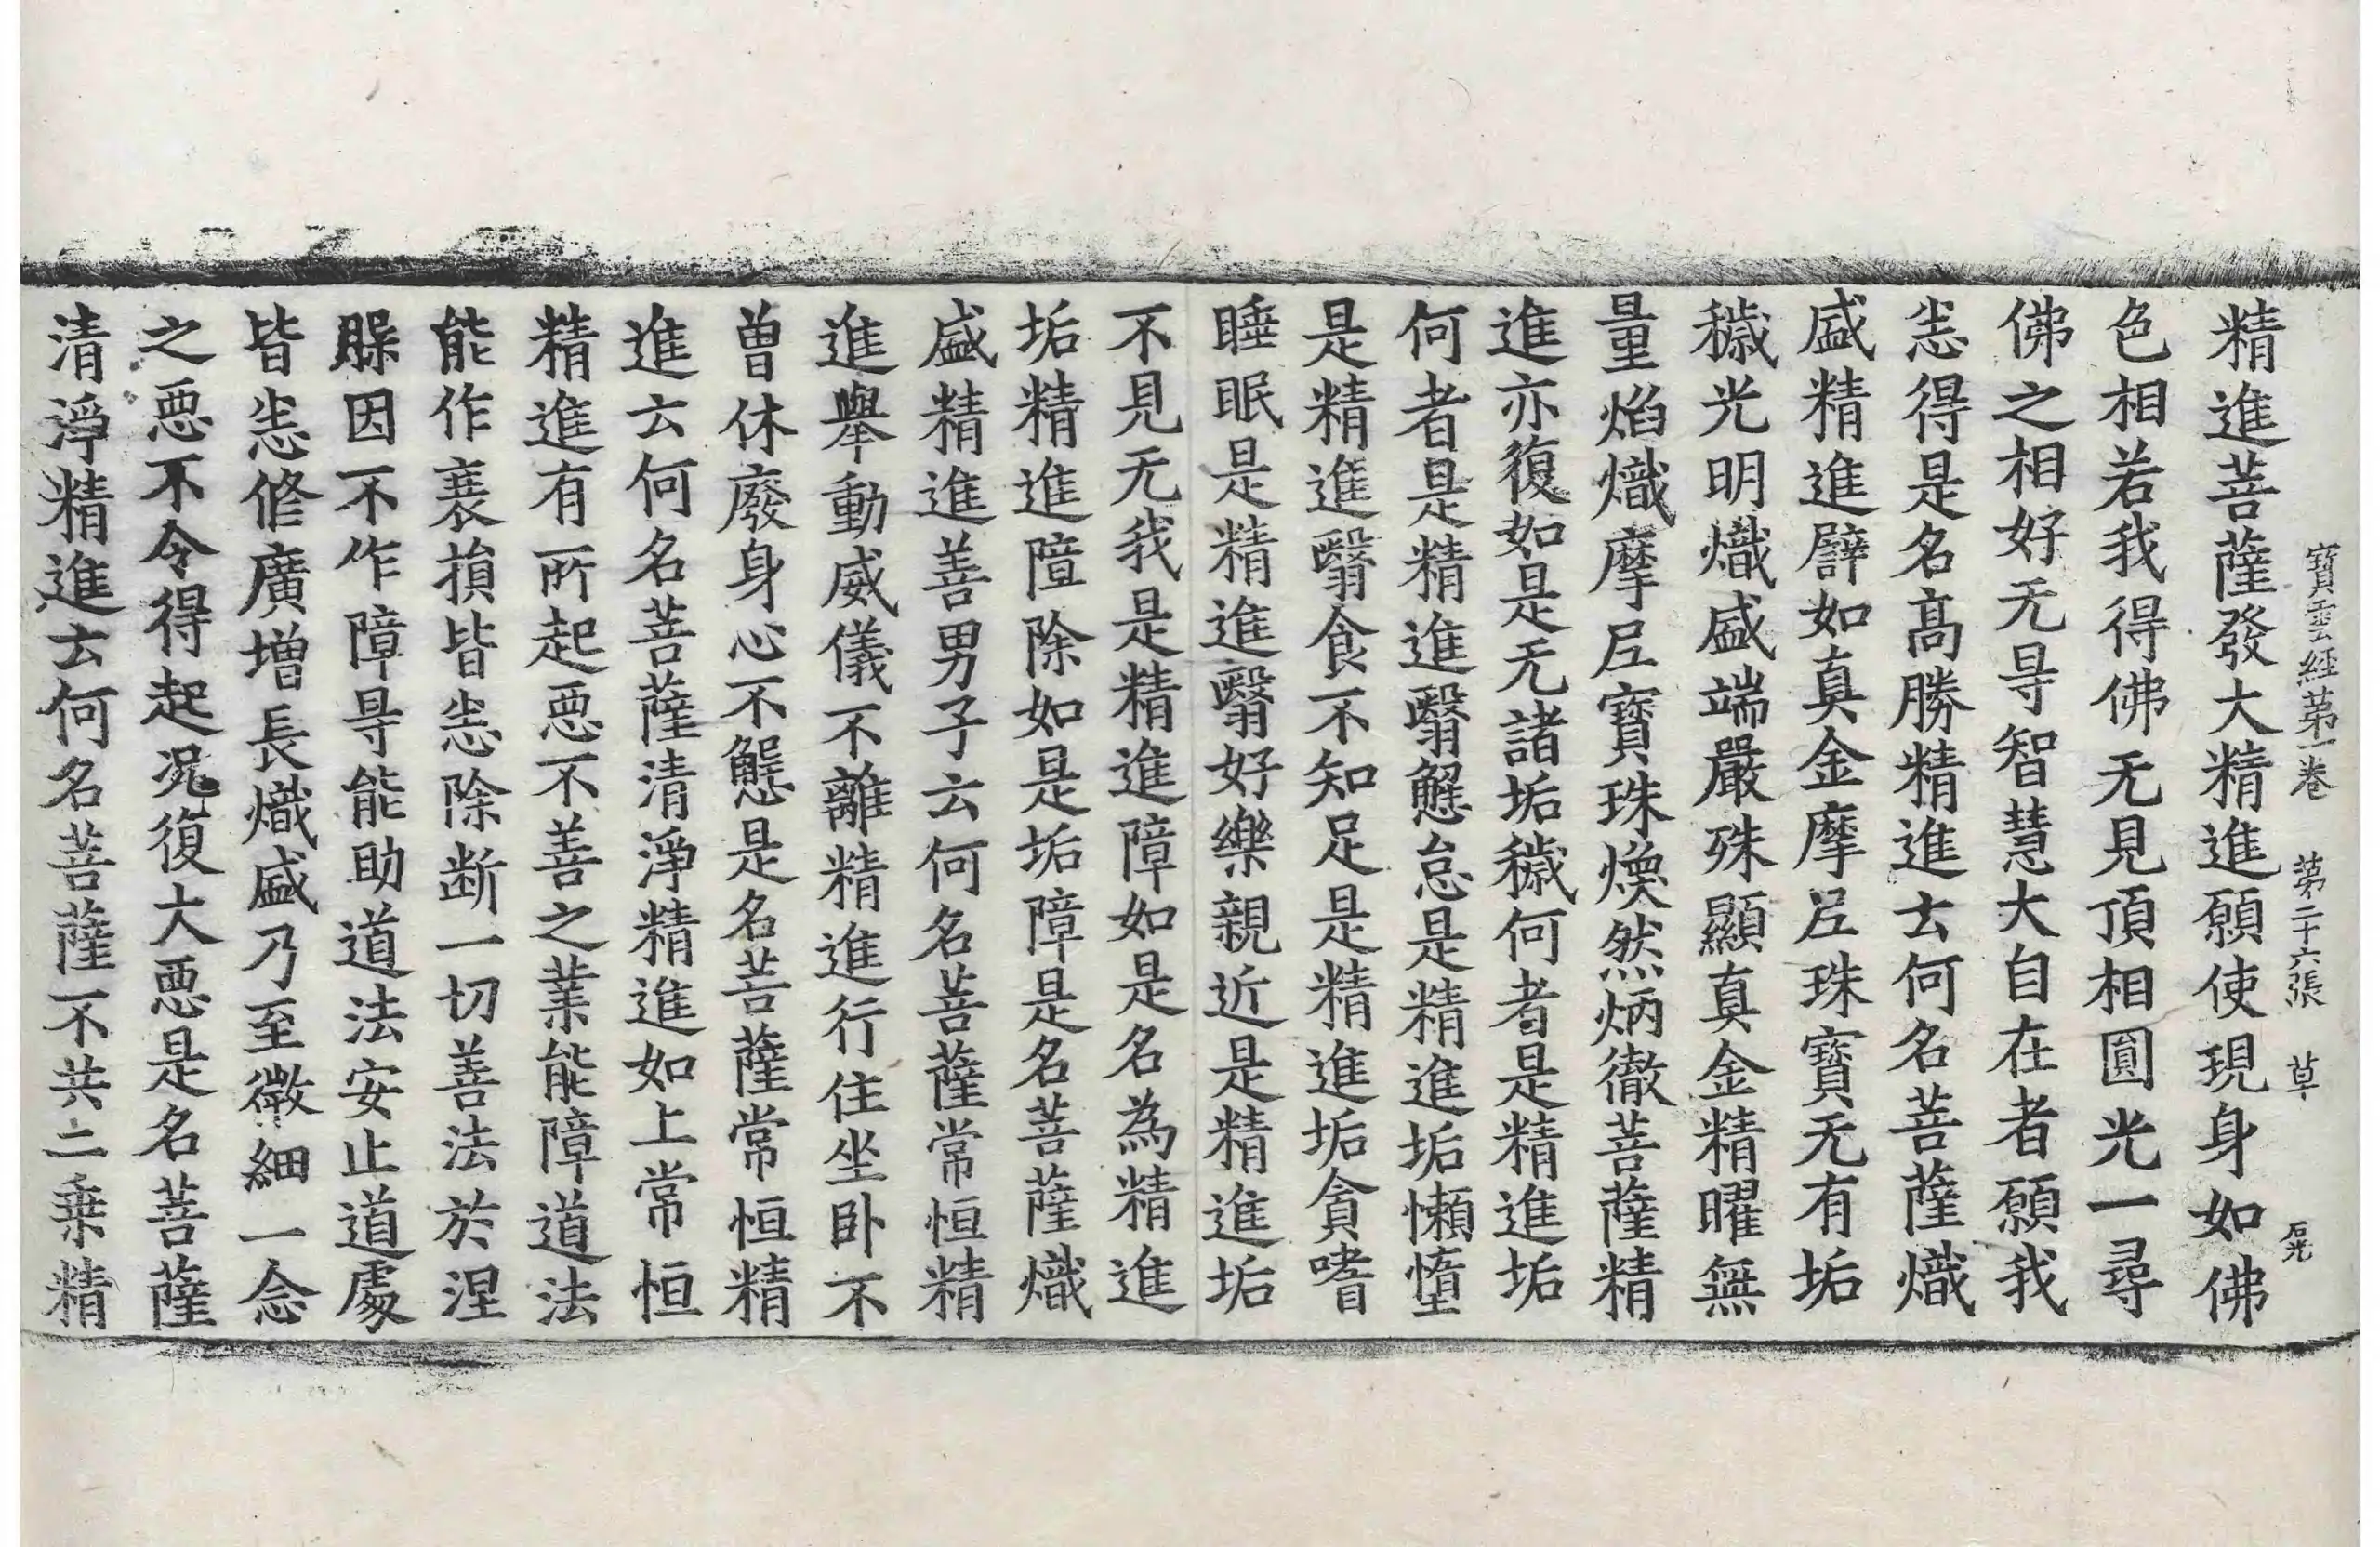 寶雲經第一卷 第二十六張 草 石光
精進菩薩發大精進願使現身如佛
色相若我得佛无見頂相圓光一尋
佛之相好无㝵智慧大自在者願我
悉得是名髙勝精進云何名菩薩熾
盛精進譬如真金摩尼珠寶无有垢
穢光明熾盛端嚴殊顯真金精曜無
量焰熾摩尼寶珠煥然炳徹菩薩精
進亦復如是无諸垢穢何者是精進垢
何者是精進翳懈怠是精進垢懶惰
是精進翳食不知足是精進垢貪嗜
睡眠是精進翳好樂親近是精進垢
不見无我是精進障如是名為精進
垢精進障除如是垢障是名菩薩熾
盛精進善男子云何名菩薩常恒精
進舉動威儀不離精進行住坐卧不
曾休廢身心不懈是名菩薩常恒精
進云何名菩薩清淨精進如上常恒
精進有所起惡不善之業能障道法
能作衰損皆悉除断一切善法於涅
臊因不作障㝵能助道法安止道處
皆悉修廣增長熾盛乃至微細一念
之惡不令得起况復大惡是名菩薩
清淨精進云何名菩薩不共二乗精